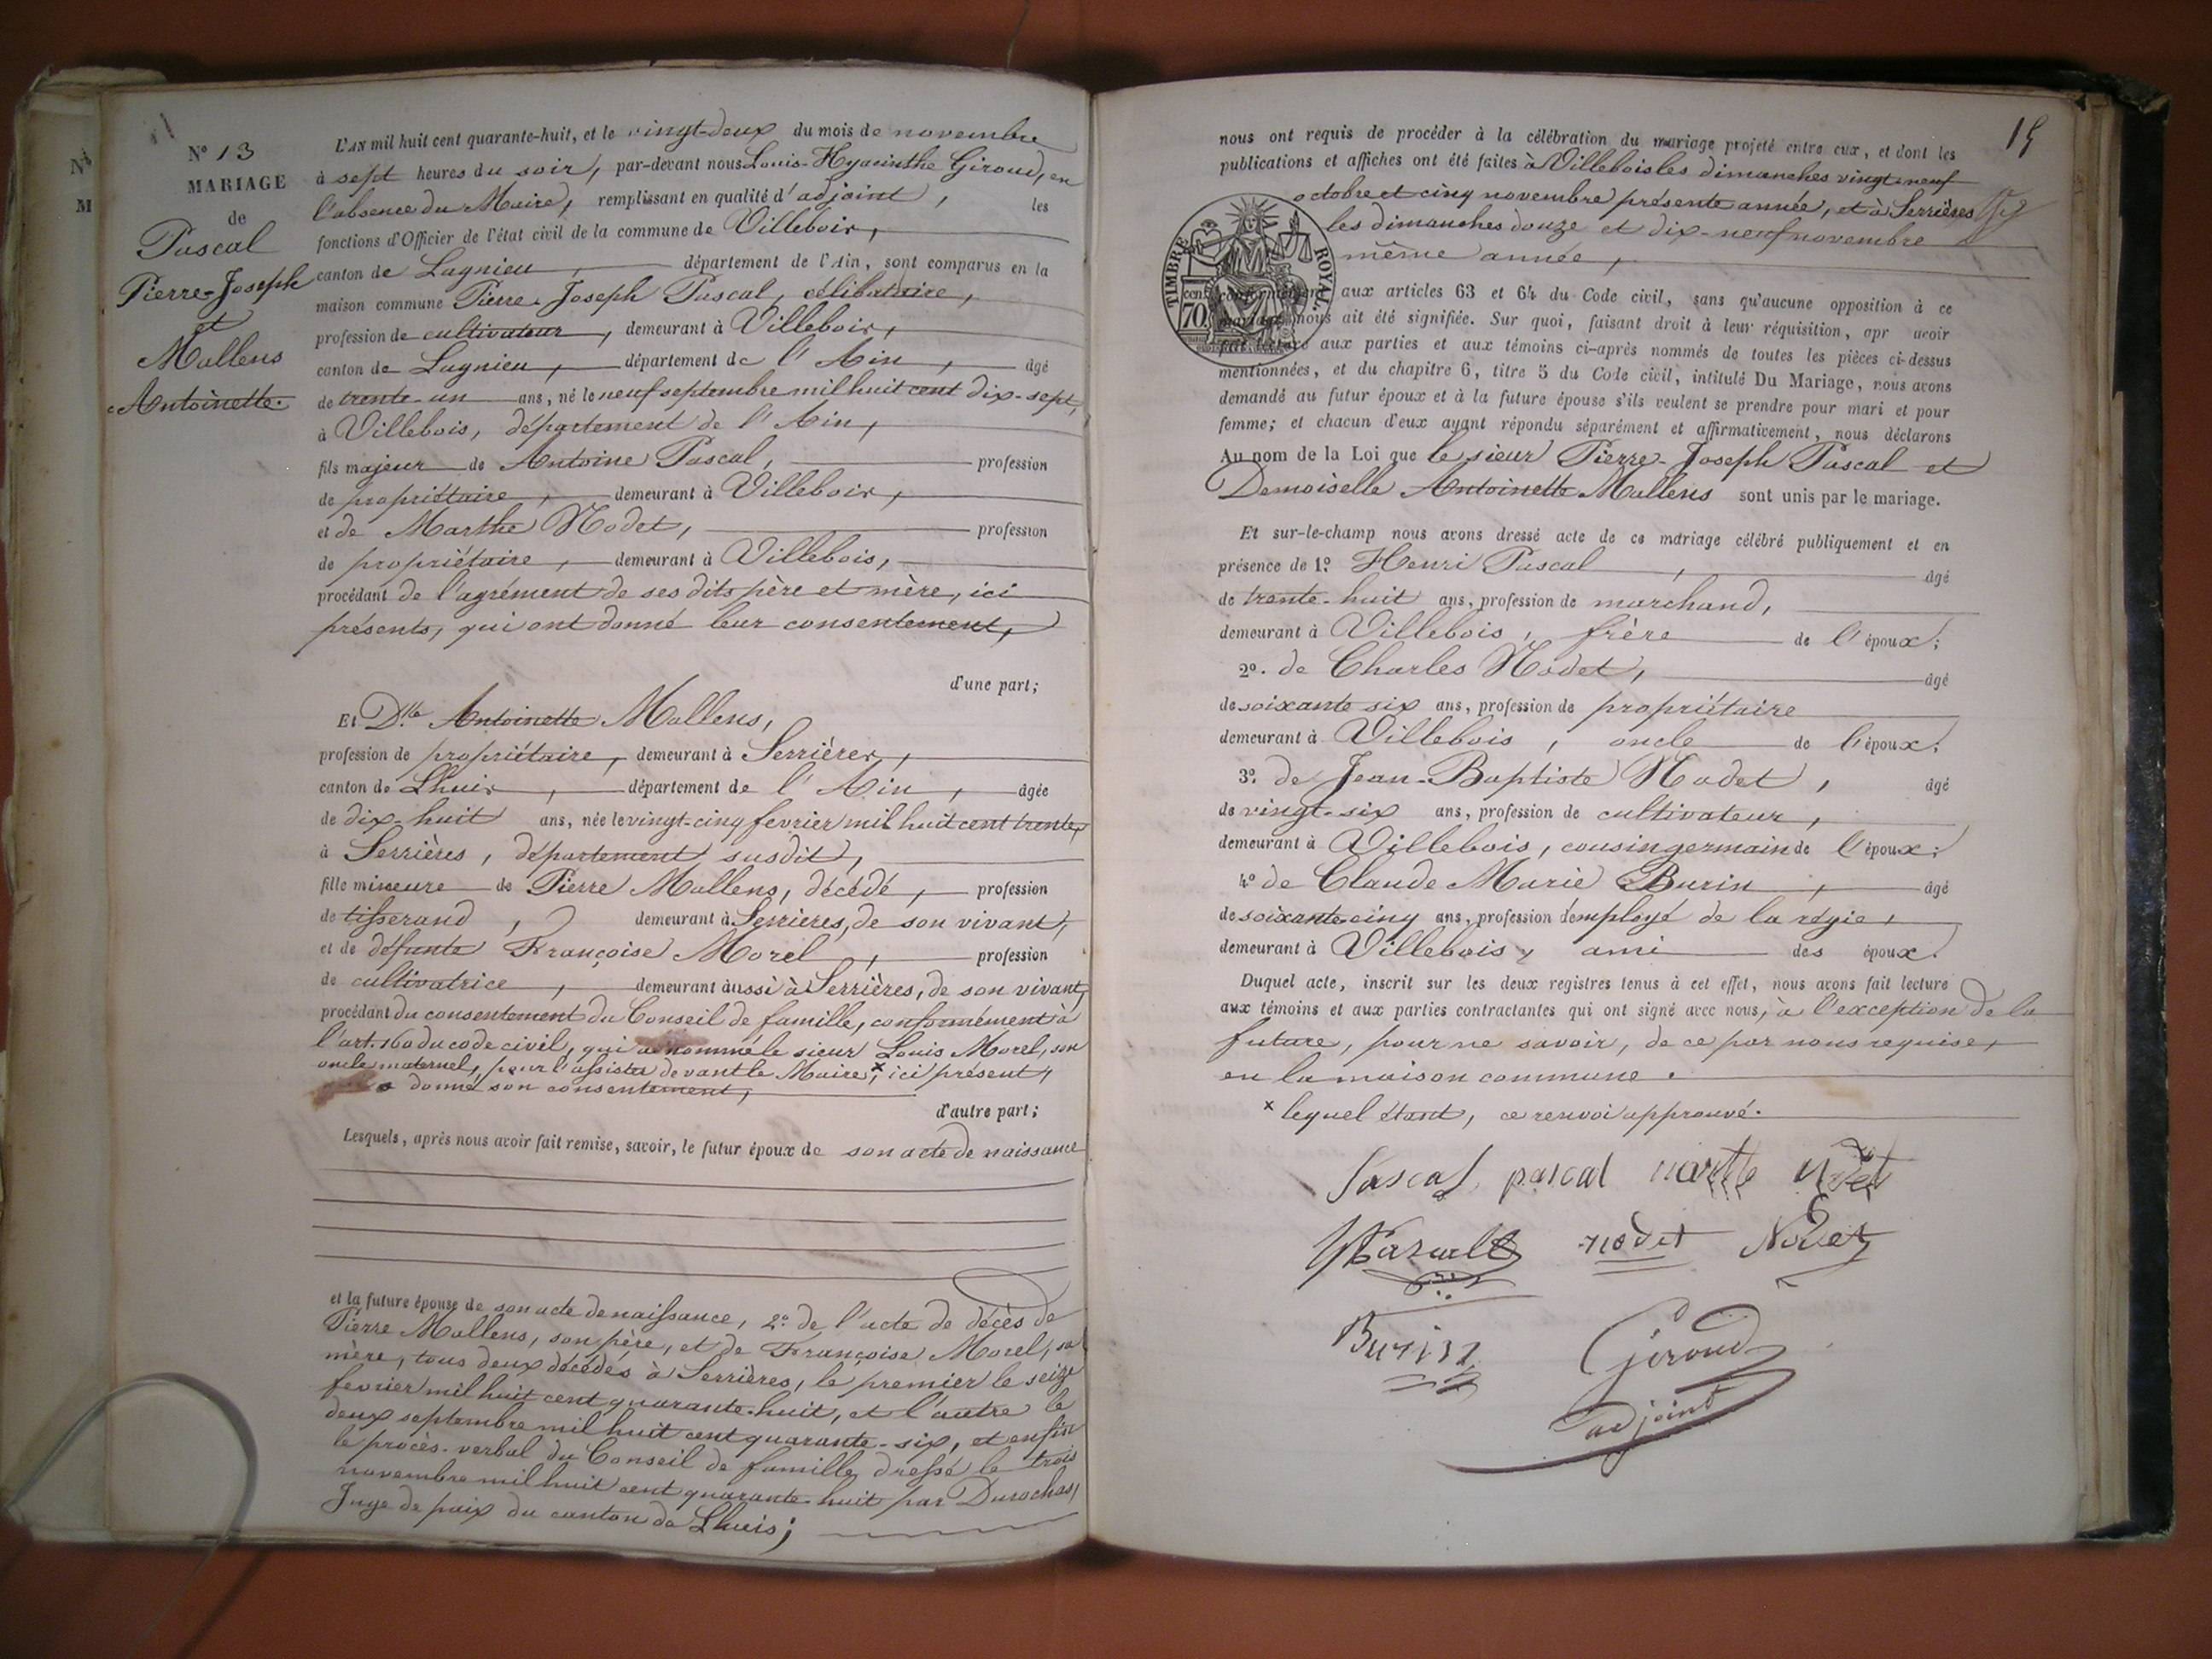 N°
M
N° 13
MARIAGE
de
Pascal
Pierre-Joseph
et
Mallens
Antoinette.
L'AN mil huit cent quarante-huit, et le vingt-deux du mois de novembre
à sept heures du soir, par-devant nous Louis-Hyacinthe Giroud, en
l'absence du Maire, remplissant en qualité d'adjoint, les
fonctions d'Officier de l'état civil de la commune de Villebois,
canton de Lagnieu, département de l'Ain, sont comparus en la
maison commune Pierre-Joseph Pascal, célibataire,
profession de cultivateur, demeurant à Villebois,
canton de Lagnieu, département de l'Ain, âgé
de trente-un ans, né le neuf septembre mil huit cent dix-sept,
à Villebois, département de l'Ain,
fils majeur de Antoine Pascal, profession
de propriétaire, demeurant à Villebois,
et de Marthe Nodet, profession
de propriétaire, demeurant à Villebois,
procédant de l'agrément de ses dits père et mère, ici
présents, qui ont donné leur consentement,
d'une part;
Et Dlle Antoinette Mallens,
profession de propriétaire, demeurant à Serrières,
canton de Lhuis, département de l'Ain, âgée
de dix-huit ans, née le vingt-cinq fevrier mil huit cent trente,
à Serrières, département susdit,
fille mineure de Pierre Mallens, décédé, profession
de tisserand, demeurant à Serrieres, de son vivant,
et de défunte Françoise Morel, profession
de cultivatrice, demeurant aussi à Serrières, de son vivant,
procédant du consentement du Conseil de famille, conformément à
l'art. 160 du code civil, qui a nommé le sieur Louis Morel, son
oncle maternel, pour l'assister devant le Maire, x ici présent,
a donné son consentement,
d'autre part;
Lesquels, après nous avoir fait remise, savoir, le futur époux de son acte de naissance
et la future épouse de son acte de naissance, 2.° de l'acte de décès de
Pierre Mallens, son père, et de Françoise Morel, sa
mère, tous deux décédés à Serrières, le premier le seize
fevrier mil huit cent quarante-huit, et l'autre le
deux septembre mil huit cent quarante-six, et enfin
le procès-verbal du Conseil de famille dressé le trois
novembre mil huit cent quarante-huit par Durochas,
Juge de paix du canton de Lhuis;
15
nous ont requis de procéder à la célébration du mariage projeté entre eux, et dont les
publications et affiches ont été faites à Villebois les dimanches vingt-neuf
octobre et cinq novembre présente année, et à Serrières
les dimanches douze et dix-neuf novembre
même année,
TIMBRE ROYAL
70 cent
conformément aux articles 63 et 64 du Code civil, sans qu'aucune opposition à ce
mariage nous ait été signifiée. Sur quoi, faisant droit à leur réquisition, apr avoir
fait lecture aux parties et aux témoins ci-après nommés de toutes les pièces ci-dessus
mentionnées, et du chapitre 6, titre 5 du Code civil, intitulé Du Mariage, nous avons
demandé au futur époux et à la future épouse s'ils veulent se prendre pour mari et pour
femme; et chacun d'eux ayant répondu séparément et affirmativement, nous déclarons
Au nom de la Loi que le sieur Pierre-Joseph Pascal et
Demoiselle Antoinette Mallens sont unis par le mariage.
Et sur-le-champ nous avons dressé acte de ce mariage célébré publiquement et en
présence de 1.° Henri Pascal, âgé
de trente-huit ans, profession de marchand,
demeurant à Villebois, frère de l'époux;
2°. de Charles Nodet, âgé
de soixante six ans, profession de propriétaire
demeurant à Villebois, oncle de l'époux;
3°. de Jean-Baptiste Nodet, âgé
de vingt-six ans, profession de cultivateur,
demeurant à Villebois, cousin germain de l'époux;
4° de Claude Marie Burin, âgé
de soixante-cinq ans, profession d'employé de la régie,
demeurant à Villebois, ami des époux.
Duquel acte, inscrit sur les deux registres tenus à cet effet, nous avons fait lecture
aux témoins et aux parties contractantes qui ont signé avec nous, à l'exception de la
future, pour ne savoir, de ce par nous requise,
en la maison commune.
x lequel étant, ce renvoi approuvé.
Pascal pascal marthe Nodet
HPascal nodet Nodet
Burin Giroud
adjoint